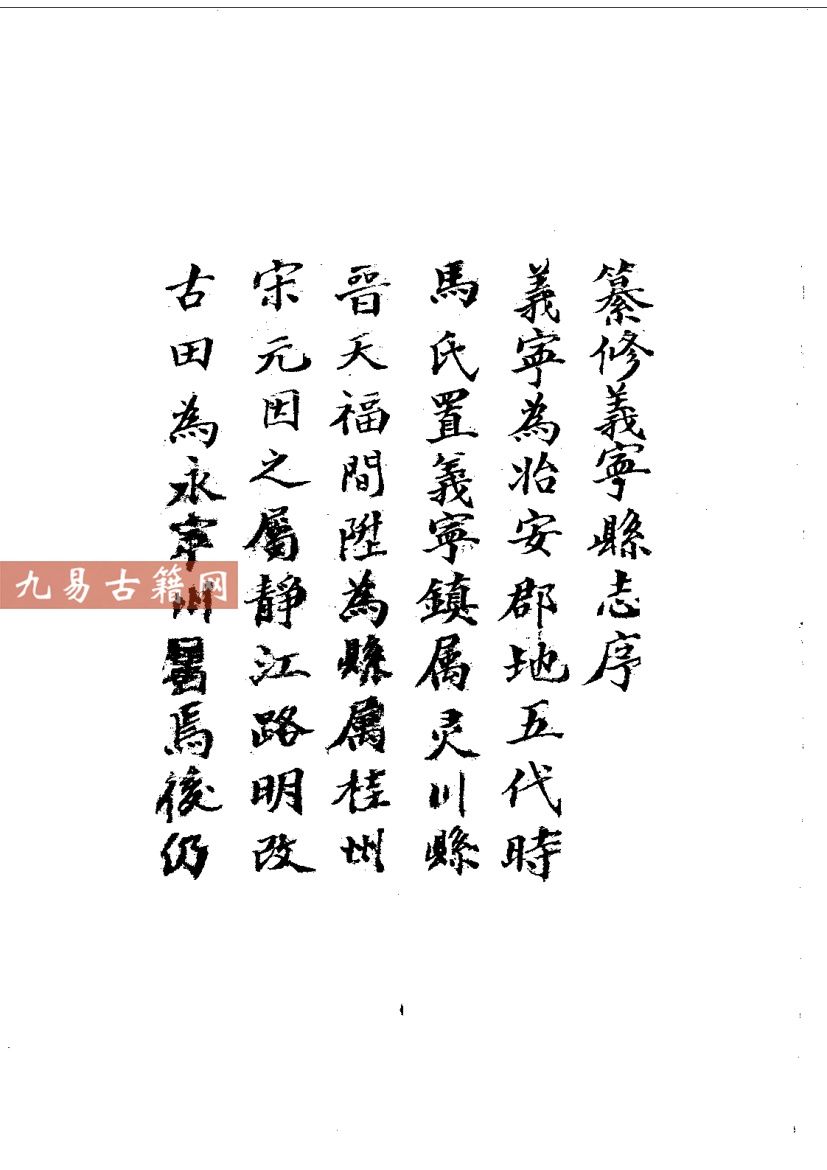 纂修義寧縣志序
義寧為始安郡地五代時
馬氏置義寧鎮属灵川縣
晉天福間陞為縣属桂州
宋元因之屬靜江路明改
古田為永寧州屬焉後仍
九易古籍网